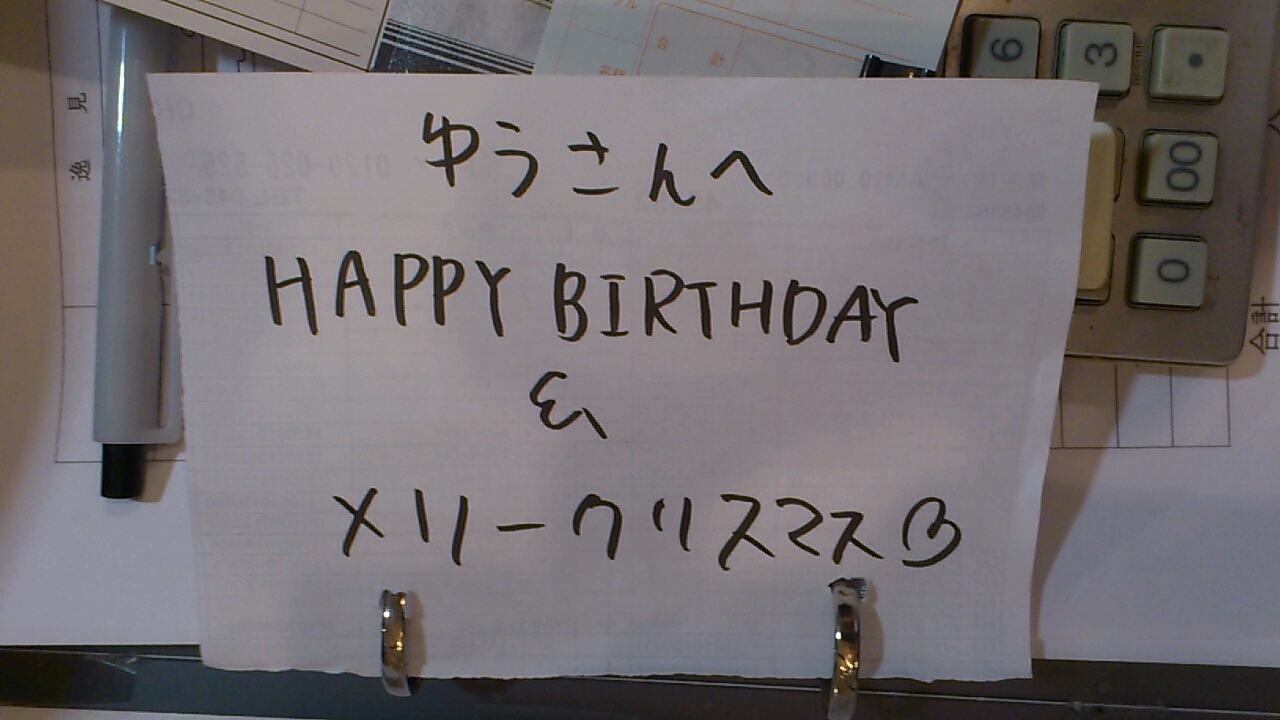 ゆうさんへ
HAPPY BIRTHDAY
&
メリークリスマス♡
逸見
合計
6
3
.
00
0
合計